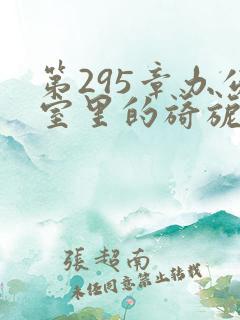 第295章办公
室里的旖旎
張超南
未经同意禁止转载